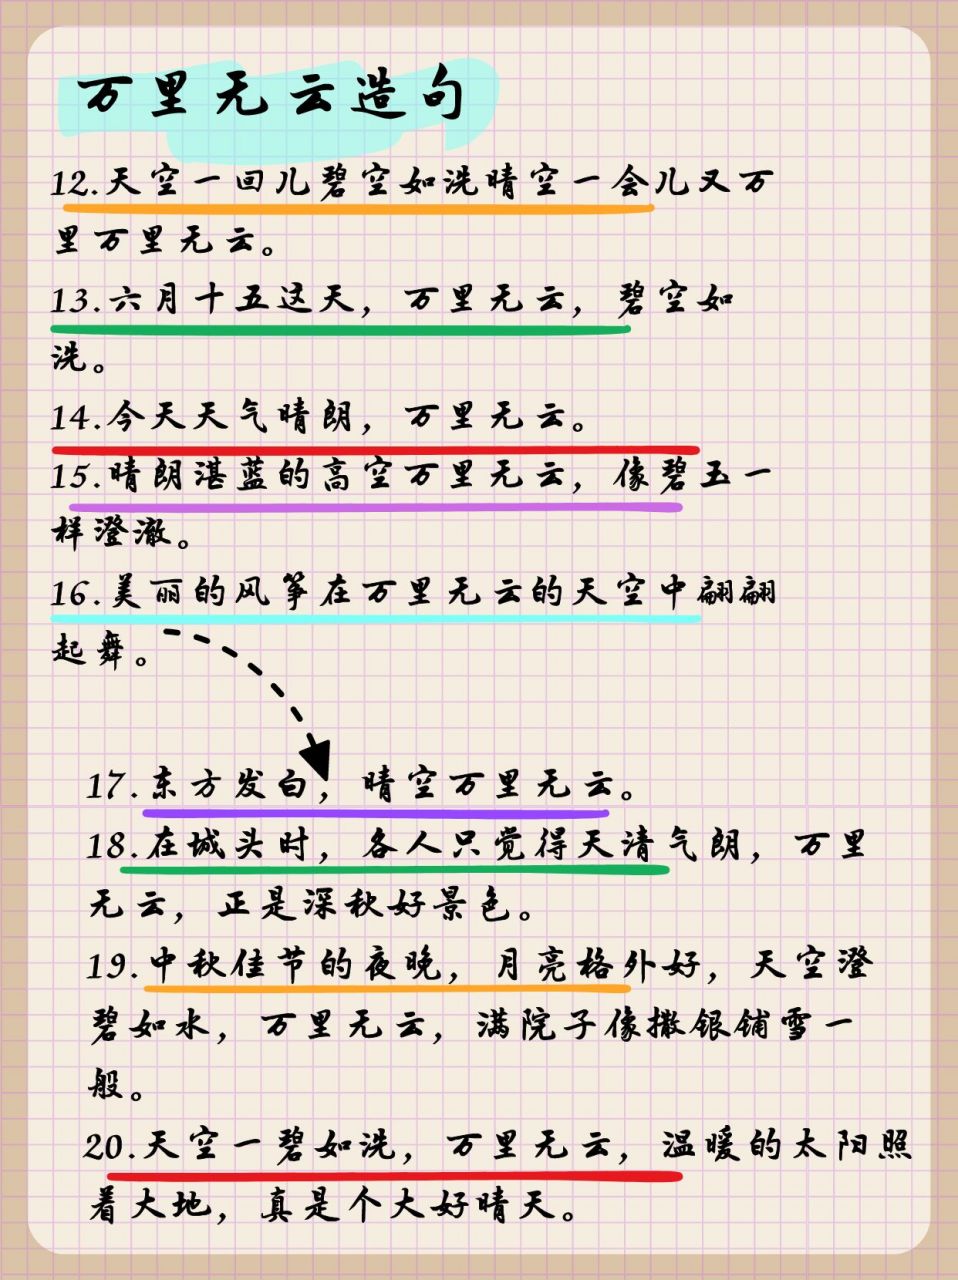 万里无云造句
12.天空一回儿碧空如洗晴空一会儿又万
里万里无云。
13.六月十五这天，万里无云，碧空如
洗。
14.今天天气晴朗，万里无云。
15.晴朗湛蓝的高空万里无云，像碧玉一
样澄澈。
16.美丽的风筝在万里无云的天空中翩翩
起舞。
17.东方发白，晴空万里无云。
18.在城头时，各人只觉得天清气朗，万里
无云，正是深秋好景色。
19.中秋佳节的夜晚，月亮格外好，天空澄
碧如水，万里无云，满院子像撒银铺雪一
般。
20.天空一碧如洗，万里无云，温暖的太阳照
着大地，真是个大好晴天。